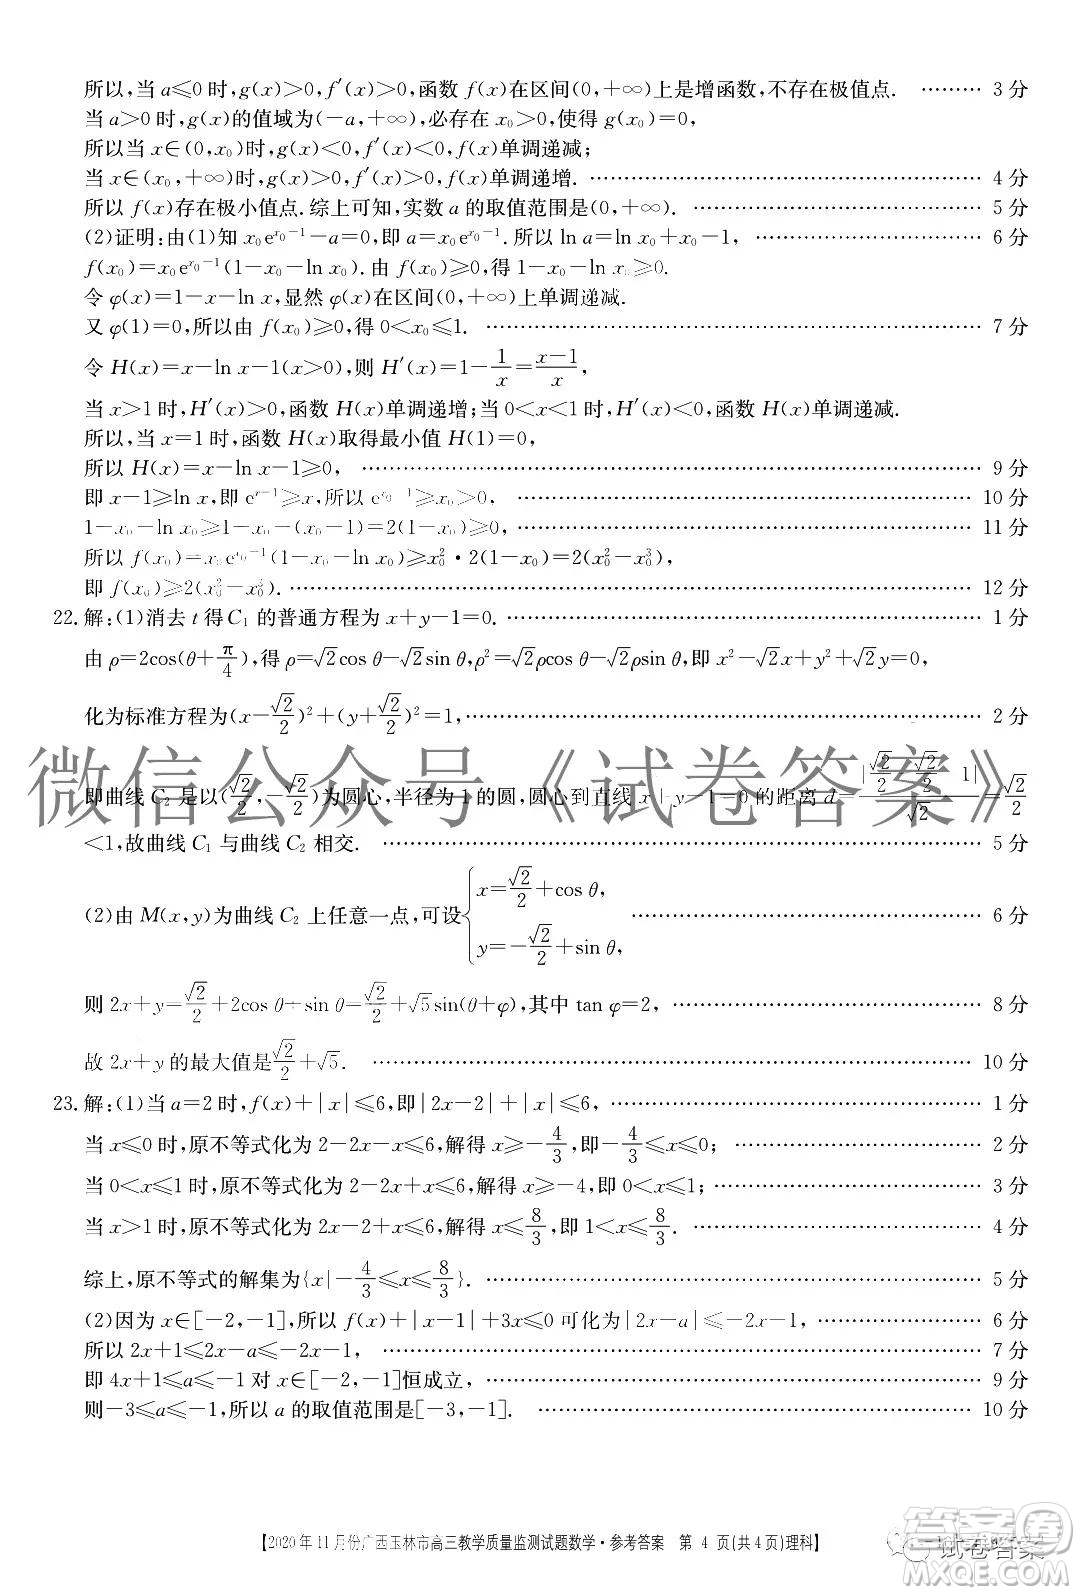 所以,当 a≤0 时,g(x)>0,f′(x)>0,函数 f(x)在区间(0,+∞)上是增函数,不存在极值点. ……… 3 分
当 a>0 时,g(x)的值域为(-a,+∞),必存在 x₀>0,使得 g(x₀)=0,
所以当 x∈(0,x₀)时,g(x)<0,f′(x)<0,f(x)单调递减;
当 x∈(x₀,+∞)时,g(x)>0,f′(x)>0,f(x)单调递增. ……… 4 分
所以 f(x)存在极小值点.综上可知,实数 a 的取值范围是(0,+∞). ……… 5 分
(2)证明:由(1)知 x₀e^{x₀-1}-a=0,即 a=x₀e^{x₀-1}.所以 ln a=ln x₀+x₀-1, ……… 6 分
f(x₀)=x₀e^{x₀-1}(1-x₀-ln x₀).由 f(x₀)≥0,得 1-x₀-ln x₀≥0.
令 φ(x)=1-x-ln x,显然 φ(x)在区间(0,+∞)上单调递减.
又 φ(1)=0,所以由 f(x₀)≥0,得 0<x₀≤1. ……… 7 分
令 H(x)=x-ln x-1(x>0),则 H′(x)=1-1/x=(x-1)/x,
当 x>1 时,H′(x)>0,函数 H(x)单调递增;当 0<x<1 时,H′(x)<0,函数 H(x)单调递减.
所以,当 x=1 时,函数 H(x)取得最小值 H(1)=0,
所以 H(x)=x-ln x-1≥0, ……… 9 分
即 x-1≥ln x,即 e^{x-1}≥x,所以 e^{x₀-1}≥x₀>0, ……… 10 分
1-x₀-ln x₀≥1-x₀-(x₀-1)=2(1-x₀)≥0, ……… 11 分
所以 f(x₀)=x₀e^{x₀-1}(1-x₀-ln x₀)≥x₀²·2(1-x₀)=2(x₀²-x₀³),
即 f(x₀)≥2(x₀²-x₀³). ……… 12 分
22.解:(1)消去 t 得 C₁ 的普通方程为 x+y-1=0. ……… 1 分
由 ρ=2cos(θ+π/4),得 ρ=√2cos θ-√2sin θ,ρ²=√2ρcos θ-√2ρsin θ,即 x²-√2x+y²+√2y=0,
化为标准方程为(x-√2/2)²+(y+√2/2)²=1, ……… 2 分
微信公众号《试卷答案》
即曲线 C₂ 是以(√2/2,-√2/2)为圆心,半径为 1 的圆,圆心到直线 x+y-1=0 的距离 d=|√2/2-√2/2-1|/√2=√2/2
<1,故曲线 C₁ 与曲线 C₂ 相交. ……… 5 分
(2)由 M(x,y)为曲线 C₂ 上任意一点,可设{x=√2/2+cos θ, y=-√2/2+sin θ, ……… 6 分
则 2x+y=√2/2+2cos θ+sin θ=√2/2+√5sin(θ+φ),其中 tan φ=2, ……… 8 分
故 2x+y 的最大值是√2/2+√5. ……… 10 分
23.解:(1)当 a=2 时,f(x)+|x|≤6,即|2x-2|+|x|≤6, ……… 1 分
当 x≤0 时,原不等式化为 2-2x-x≤6,解得 x≥-4/3,即-4/3≤x≤0; ……… 2 分
当 0<x≤1 时,原不等式化为 2-2x+x≤6,解得 x≥-4,即 0<x≤1; ……… 3 分
当 x>1 时,原不等式化为 2x-2+x≤6,解得 x≤8/3,即 1<x≤8/3. ……… 4 分
综上,原不等式的解集为{x|-4/3≤x≤8/3}. ……… 5 分
(2)因为 x∈[-2,-1],所以 f(x)+|x-1|+3x≤0 可化为|2x-a|≤-2x-1, ……… 6 分
所以 2x+1≤2x-a≤-2x-1, ……… 7 分
即 4x+1≤a≤-1 对 x∈[-2,-1]恒成立, ……… 9 分
则-3≤a≤-1,所以 a 的取值范围是[-3,-1]. ……… 10 分
【2020 年 11 月份广西玉林市高三教学质量监测试题数学·参考答案 第 4 页(共 4 页)理科】
试卷答案
答案圈
MXQE.COM